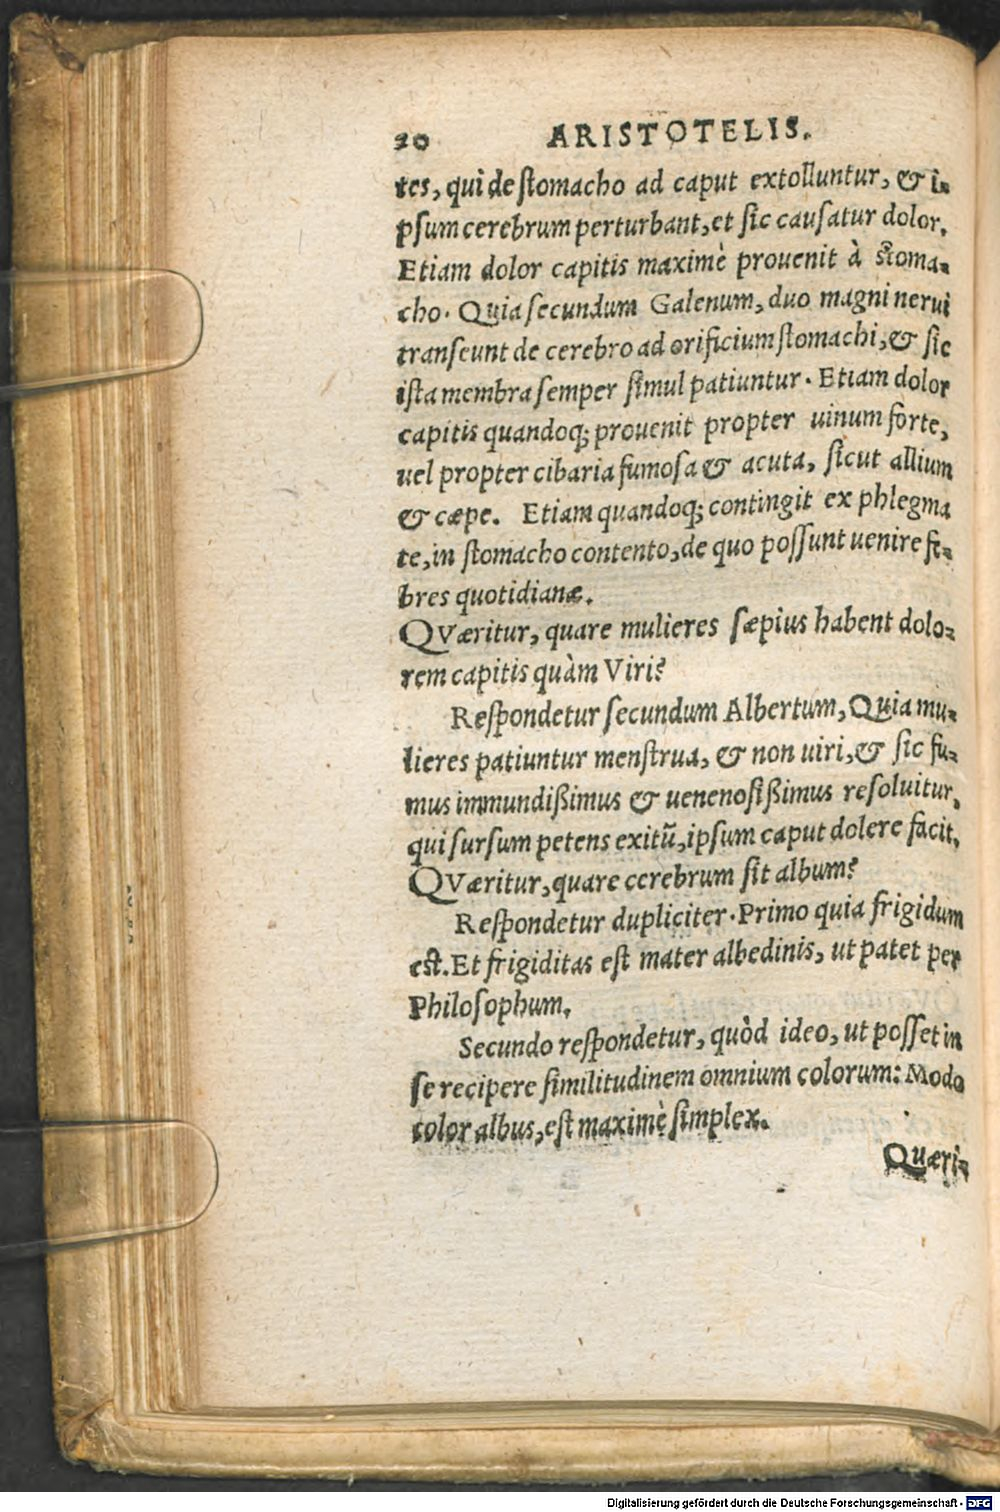 20 ARISTOTELIS.
tes, qui de stomacho ad caput extolluntur, & i-
psum cerebrum perturbant, et sic causatur dolor.
Etiam dolor capitis maximè prouenit à stoma-
cho. Quia secundum Galenum, duo magni nerui
transeunt de cerebro ad orificium stomachi, & sic
ista membra semper simul patiuntur. Etiam dolor
capitis quandoq; prouenit propter uinum forte,
uel propter cibaria fumosa & acuta, sicut allium
& cæpe. Etiam quandoq; contingit ex phlegma
te, in stomacho contento, de quo possunt uenire fe-
bres quotidianæ.
QVæritur, quare mulieres sæpius habent dolo-
rem capitis quàm Viri?
Respondetur secundum Albertum, Quia mu-
lieres patiuntur menstrua, & non uiri, & sic fu-
mus immundißimus & uenenosißimus resoluitur,
qui sursum petens exitū, ipsum caput dolere facit.
QVæritur, quare cerebrum sit album?
Respondetur dupliciter. Primo quia frigidum
est. Et frigiditas est mater albedinis, ut patet per
Philosophum.
Secundo respondetur, quòd ideo, ut posset in
se recipere similitudinem omnium colorum: Modo
color albus, est maximè simplex.
Quæri-
Digitalisierung gefördert durch die Deutsche Forschungsgemeinschaft - DFG